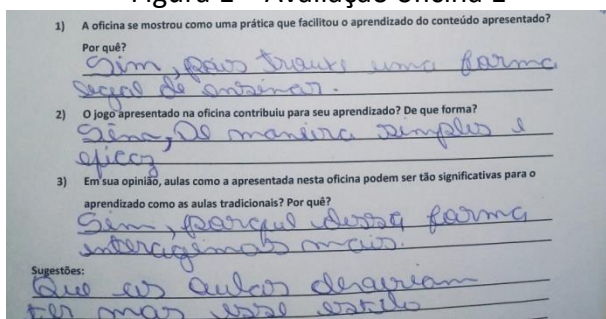 Figura 1 – Avaliação Oficina 1
1) A oficina se mostrou como uma prática que facilitou o aprendizado do conteúdo apresentado?
Por quê?
Sim, pois trouxe uma forma
legal de ensinar.
2) O jogo apresentado na oficina contribuiu para seu aprendizado? De que forma?
Sim, De maneira simples e
eficaz
3) Em sua opinião, aulas como a apresentada nesta oficina podem ser tão significativas para o
aprendizado como as aulas tradicionais? Por quê?
Sim, porque dessa forma
interagimos mais.
Sugestões:
Que as aulas deveriam
ter mas esse estilo